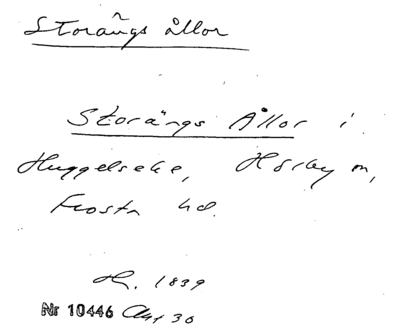 Storängs ållor
Storängs Ållor i
Huggelseke, Hörby sn,
Frosta hd.
H. 1839
Nr 10446 Akt 30